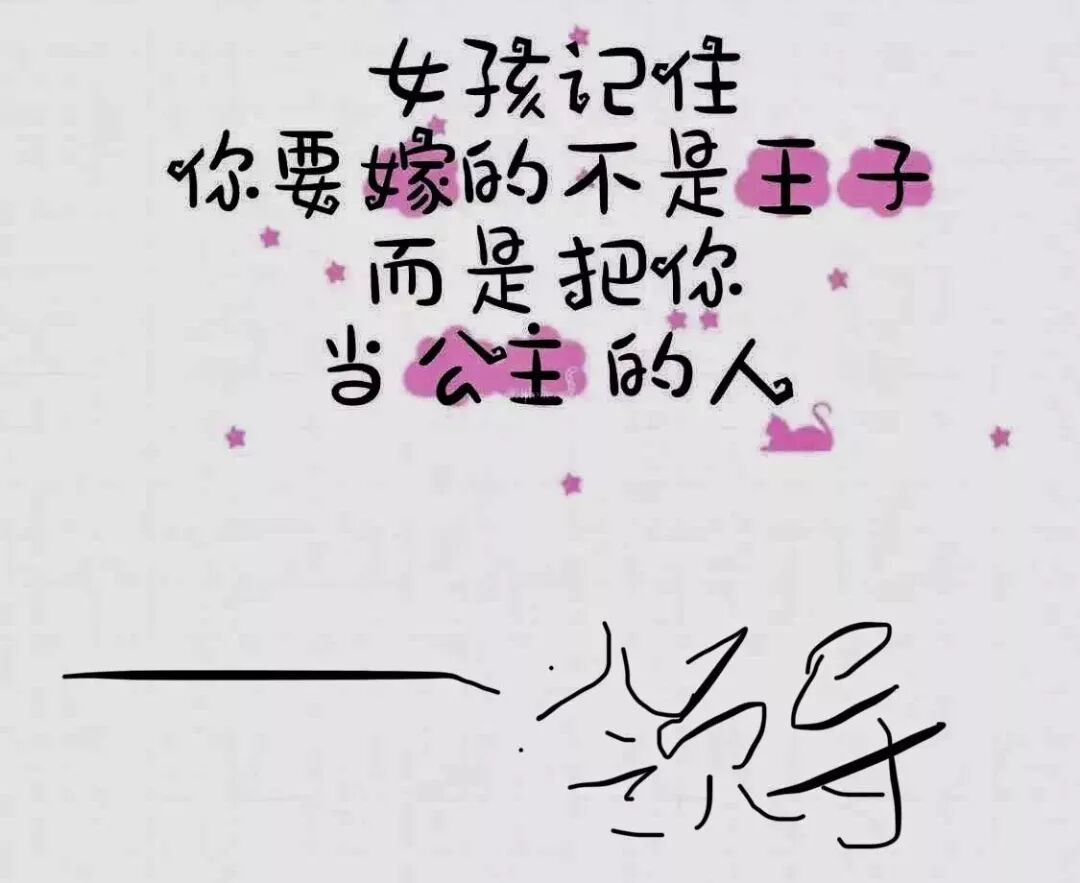 女孩记住
你要嫁的不是王子
而是把你
当公主的人
一领导